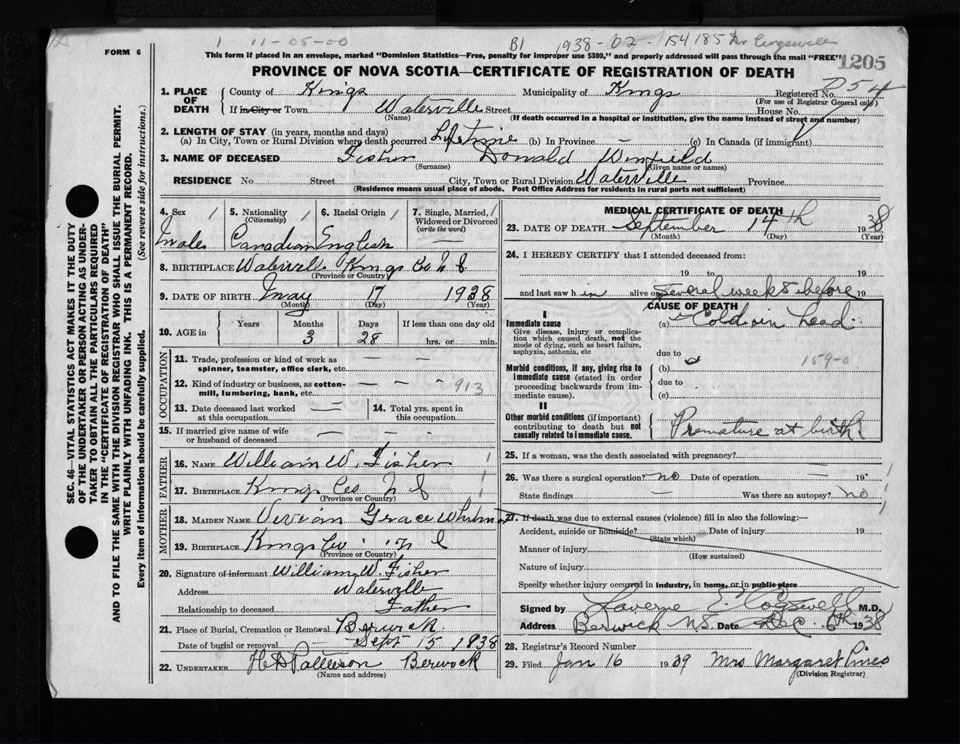 1 11-05-00 B1 1938-02-154185 Dr Cogswell
FORM 6
This form if placed in an envelope, marked "Dominion Statistics—Free, penalty for improper use $300," and properly addressed will pass through the mail "FREE"
1205
PROVINCE OF NOVA SCOTIA—CERTIFICATE OF REGISTRATION OF DEATH
SEC. 46—VITAL STATISTICS ACT MAKES IT THE DUTY
OF THE UNDERTAKER OR PERSON ACTING AS UNDER-
TAKER TO OBTAIN ALL THE PARTICULARS REQUIRED
IN THE "CERTIFICATE OF REGISTRATION OF DEATH"
AND TO FILE THE SAME WITH THE DIVISION REGISTRAR WHO SHALL ISSUE THE BURIAL PERMIT.
WRITE PLAINLY WITH UNFADING INK. THIS IS A PERMANENT RECORD.
Every item of information should be carefully supplied. (See reverse side for instructions.)
1. PLACE OF DEATH
County of Kings Municipality of Kings Registered No. 754
(For use of Registrar General only)
If in City or Town Waterville Street House No.
(Name) (If death occurred in a hospital or institution, give the name instead of street and number)
2. LENGTH OF STAY (in years, months and days)
(a) In City, Town or Rural Division where death occurred Lifetime (b) In Province — (c) In Canada (if immigrant)
3. NAME OF DECEASED Fisher Donald Winfield
(Surname) (Given name or names)
RESIDENCE No. Street City, Town or Rural Division Waterville Province
(Residence means usual place of abode. Post Office Address for residents in rural parts not sufficient)
4. Sex 5. Nationality (Citizenship) 6. Racial Origin 7. Single, Married, Widowed or Divorced (write the word)
Male Canadian English —
8. BIRTHPLACE Waterville Kings Co N S
(Province or Country)
9. DATE OF BIRTH May 17 1938
(Month) (Day) (Year)
10. AGE in Years Months Days If less than one day old
3 28 hrs. or min.
OCCUPATION
11. Trade, profession or kind of work as spinner, teamster, office clerk, etc. — —
12. Kind of industry or business, as cotton-mill, lumbering, bank, etc. — — — 913
13. Date deceased last worked at this occupation — 14. Total yrs. spent in this occupation
15. If married give name of wife or husband of deceased — — —
FATHER
16. NAME William W. Fisher
17. BIRTHPLACE Kings Co N S
(Province or Country)
MOTHER
18. MAIDEN NAME Vivian Grace
19. BIRTHPLACE Kings Co N S
(Province or Country)
20. Signature of informant William W. Fisher
Address Waterville
Relationship to deceased Father
21. Place of Burial, Cremation or Removal Berwick
Date of burial or removal Sept 15 1938
22. UNDERTAKER H D Patterson Berwick
(Name and address)
MEDICAL CERTIFICATE OF DEATH
23. DATE OF DEATH September 14th 1938
(Month) (Day) (Year)
24. I HEREBY CERTIFY that I attended deceased from:
19 to 19
and last saw him alive on several weeks before 19
CAUSE OF DEATH
I
Immediate cause (a) Cold in head
Give disease, injury or complication which caused death, not the mode of dying, such as heart failure, asphyxia, asthenia, etc
due to
Morbid conditions, if any, giving rise to immediate cause (stated in order proceeding backwards from immediate cause). (b) 159-0
due to
(c)
II
Other morbid conditions (if important) contributing to death but not causally related to immediate cause. Premature at birth
25. If a woman, was the death associated with pregnancy?
26. Was there a surgical operation? no Date of operation 19
State findings — Was there an autopsy? no
27. If death was due to external causes (violence) fill in also the following:—
Accident, suicide or homicide? Date of injury 19
(State which)
Manner of injury
(How sustained)
Nature of injury
Specify whether injury occurred in industry, in home, or in public place
Signed by Laverne E. Cogswell M.D.
Address Berwick N.S. Date Dec 6th 1938
28. Registrar's Record Number
29. Filed Jan 16 1939 Mrs Margaret Pineo
(Division Registrar)